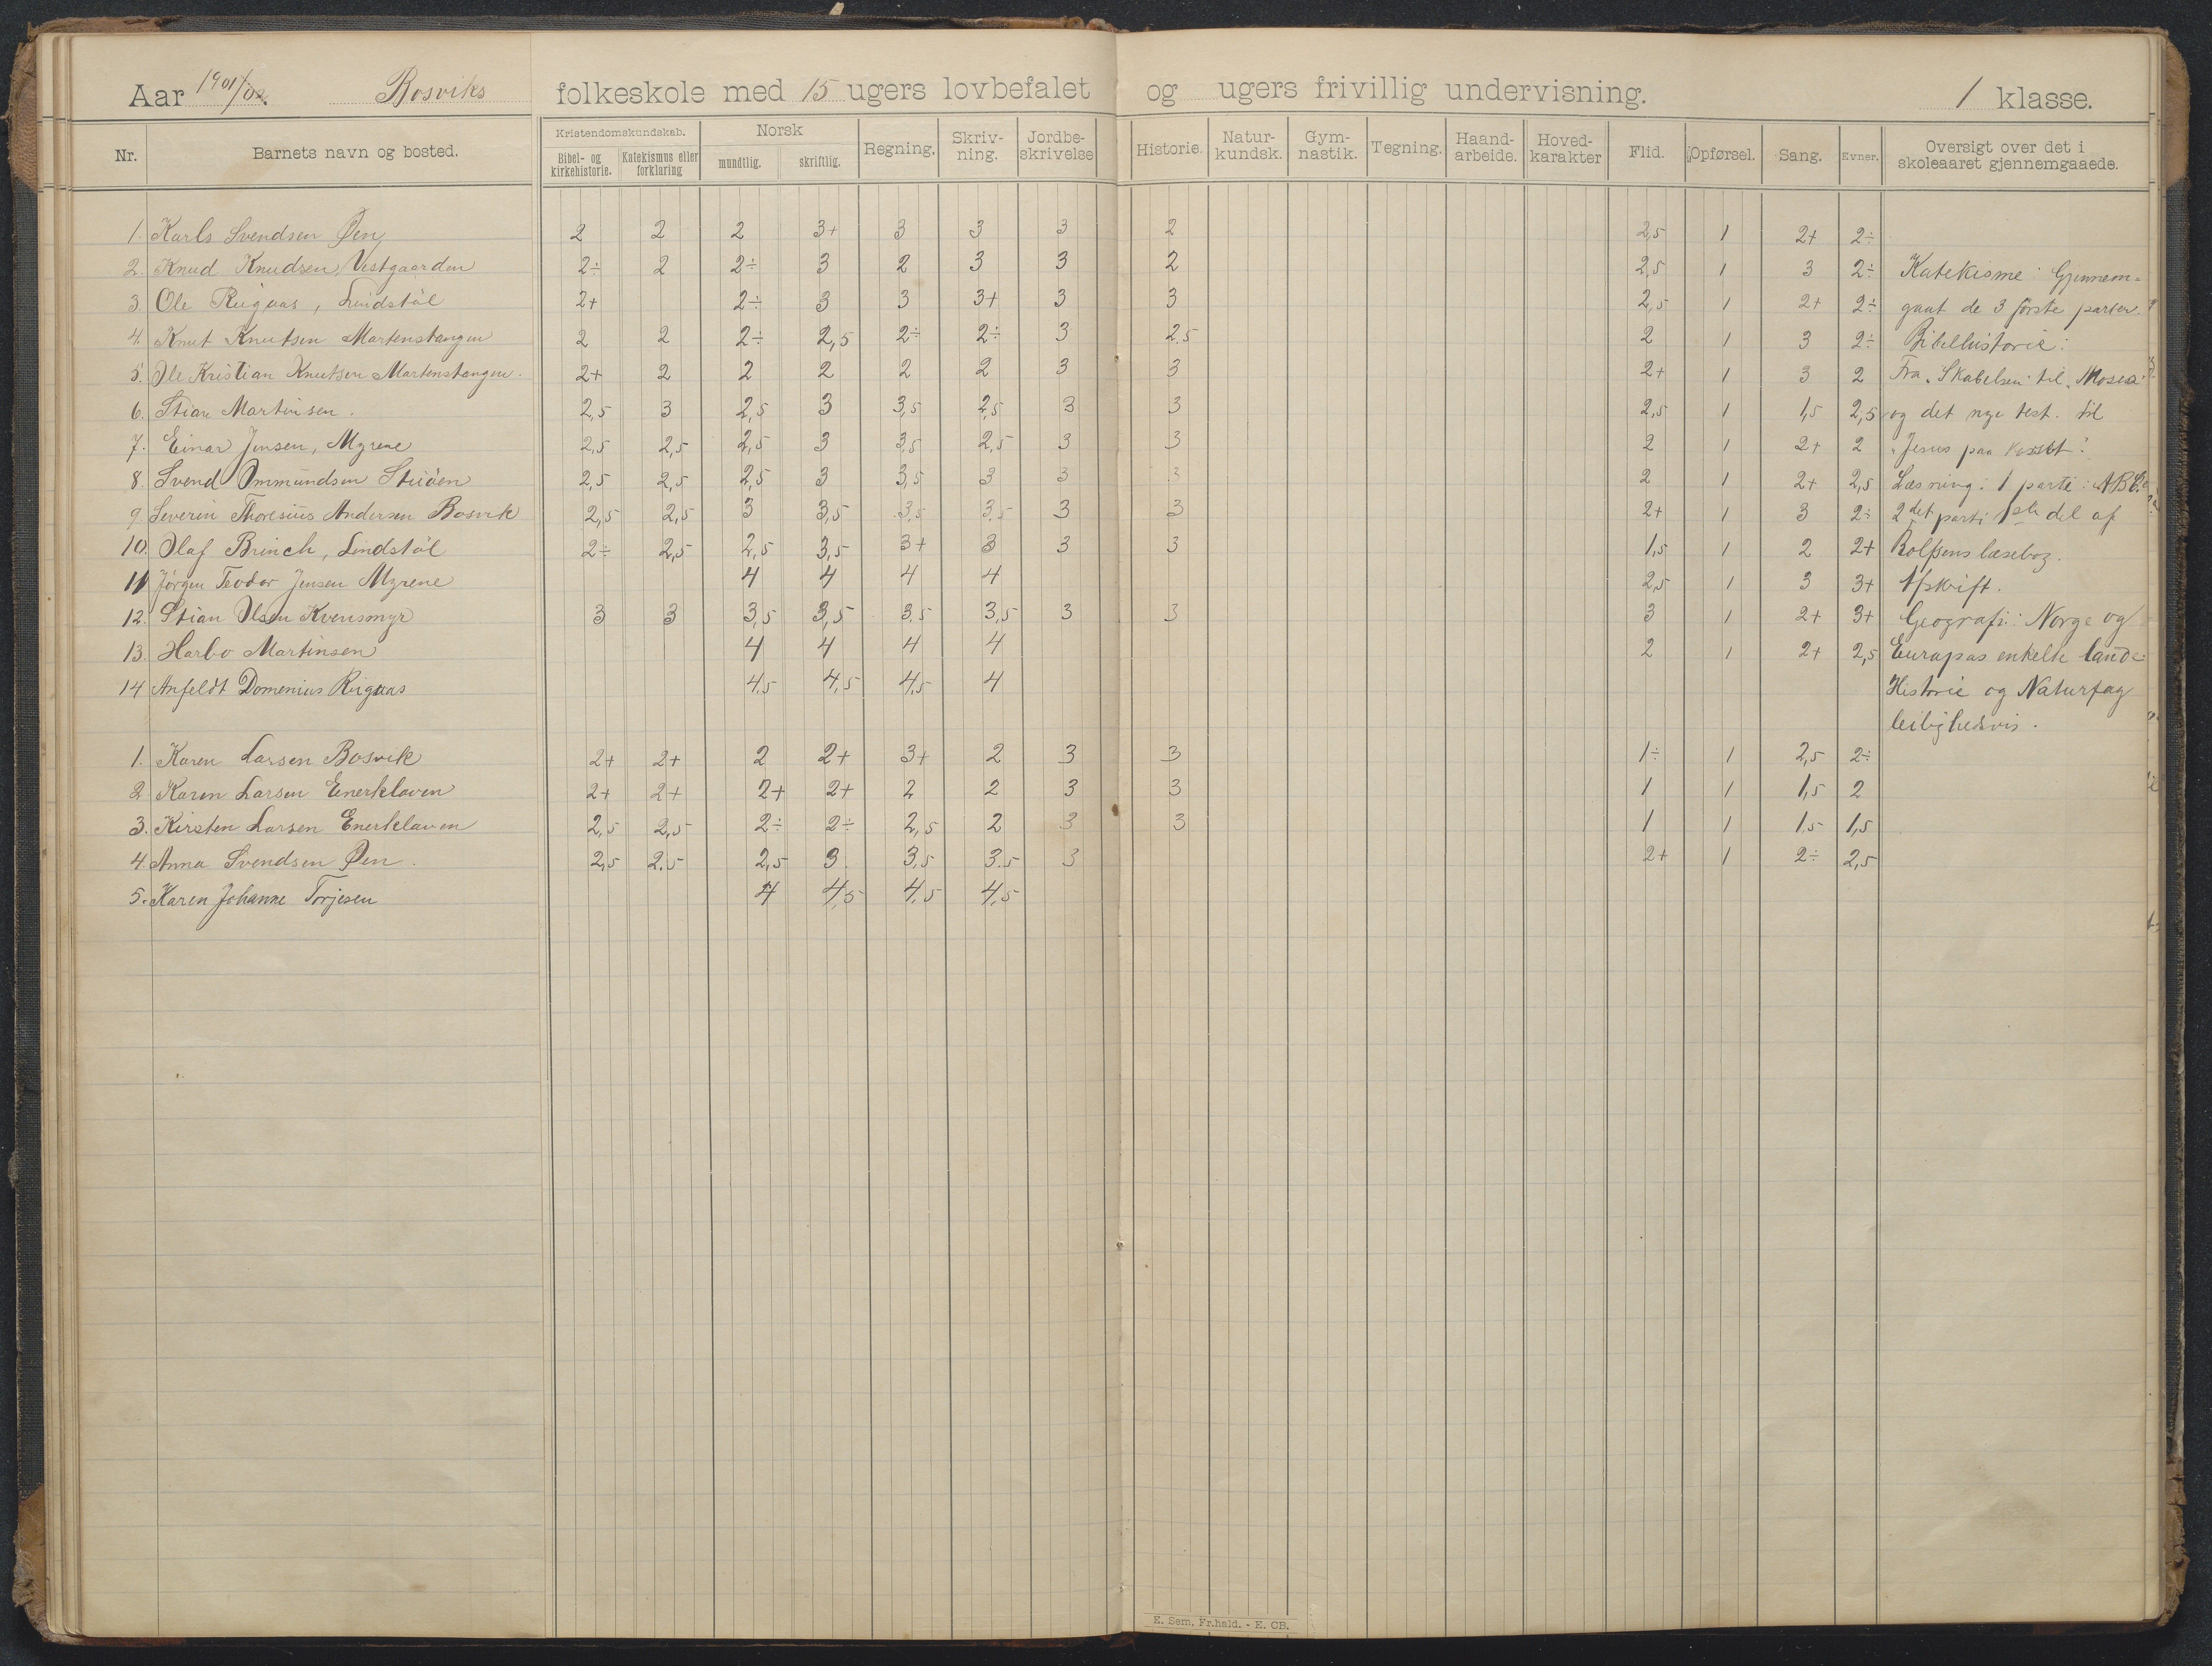 Aar 1901/02. Bosviks folkeskole med 15 ugers lovbefalet og ugers frivillig undervisning. 1 klasse.
Nr. Barnets navn og bosted. Kristendomskundskab. Bibel- og kirkehistorie. Katekismus eller forklaring Norsk mundtlig. skriftlig. Regning. Skriv-ning. Jordbe-skrivelse Historie. Natur-kundsk. Gym-nastik. Tegning. Haand-arbeide. Hoved-karakter Flid. Opførsel. Sang. Evner. Oversigt over det i skoleaaret gjennemgaaede.
1. Karls Svendsen Øen 2 2 2 3+ 3 3 3 2 2,5 1 2+ 2÷
2. Knud Knudsen Vestgaarden 2÷ 2 2÷ 3 2 3 3 2 2,5 1 3 2÷ Katekisme: Gjennem-
3. Ole Riigaas, Lindstöl 2+ 2÷ 3 3 3+ 3 3 2,5 1 2+ 2÷ gaat de 3 første parter.
4. Knut Knutsen Martenstangen 2 2 2÷ 2,5 2÷ 2÷ 3 2.5 2 1 3 2÷ Bibelhistorie:
5. Ole Kristian Knutsen Martenstangen. 2+ 2 2 2 2 2 3 3 2+ 1 3 2 Fra "Skabelsen" til "Moses"
6. Stian Martinsen. 2,5 3 2,5 3 3,5 2,5 3 3 2,5 1 1,5 2,5 og det nye test. til
7. Einar Jensen, Myrene 2,5 2,5 2,5 3 3,5 2,5 3 3 2 1 2+ 2 "Jesus paa korset".
8. Svend Ommundsen Stuöen 2,5 2,5 2,5 3 3,5 3 3 3 2 1 2+ 2,5 Læsning: 1 parti: ABC.
9. Severin Thoresius Andersen Bosvik 2,5 2,5 3 3,5 3,5 3,5 3 3 2+ 1 3 2÷ 2det parti 1ste del af
10. Olaf Brinch, Lindstöl 2÷ 2,5 2,5 3,5 3+ 3 3 3 1,5 1 2 2+ Rolfsens læsebog.
11 Jørgen Teodor Jensen Myrene 4 4 4 4 2,5 1 3 3+ Afskrift.
12. Stian Olsen Kvensmyr 3 3 3,5 3,5 3,5 3,5 3 3 3 1 2+ 3+ Geografi: Norge og
13. Harbo Martinsen 4 4 4 4 2 1 2+ 2,5 Europas enkelte lande.
14 Anfeldt Domenius Riigaas 4,5 4,5 4,5 4 Historie og Naturfag
leilighedsvis.
1. Karen Larsen Bosvik 2+ 2+ 2 2+ 3+ 2 3 3 1÷ 1 2,5 2÷
2 Karen Larsen Enerkleven 2+ 2+ 2+ 2+ 2 2 3 3 1 1 1,5 2
3. Kirsten Larsen Enerkleven 2,5 2,5 2÷ 2÷ 2,5 2 3 3 1 1 1,5 1,5
4. Anna Svendsen Øen. 2,5 2.5 2,5 3 3,5 3.5 3 2+ 1 2÷ 2,5
5. Karen Johanne Torjesen 4 4,5 4,5 4,5
E. Sem, Fr.hald. - E. CB.